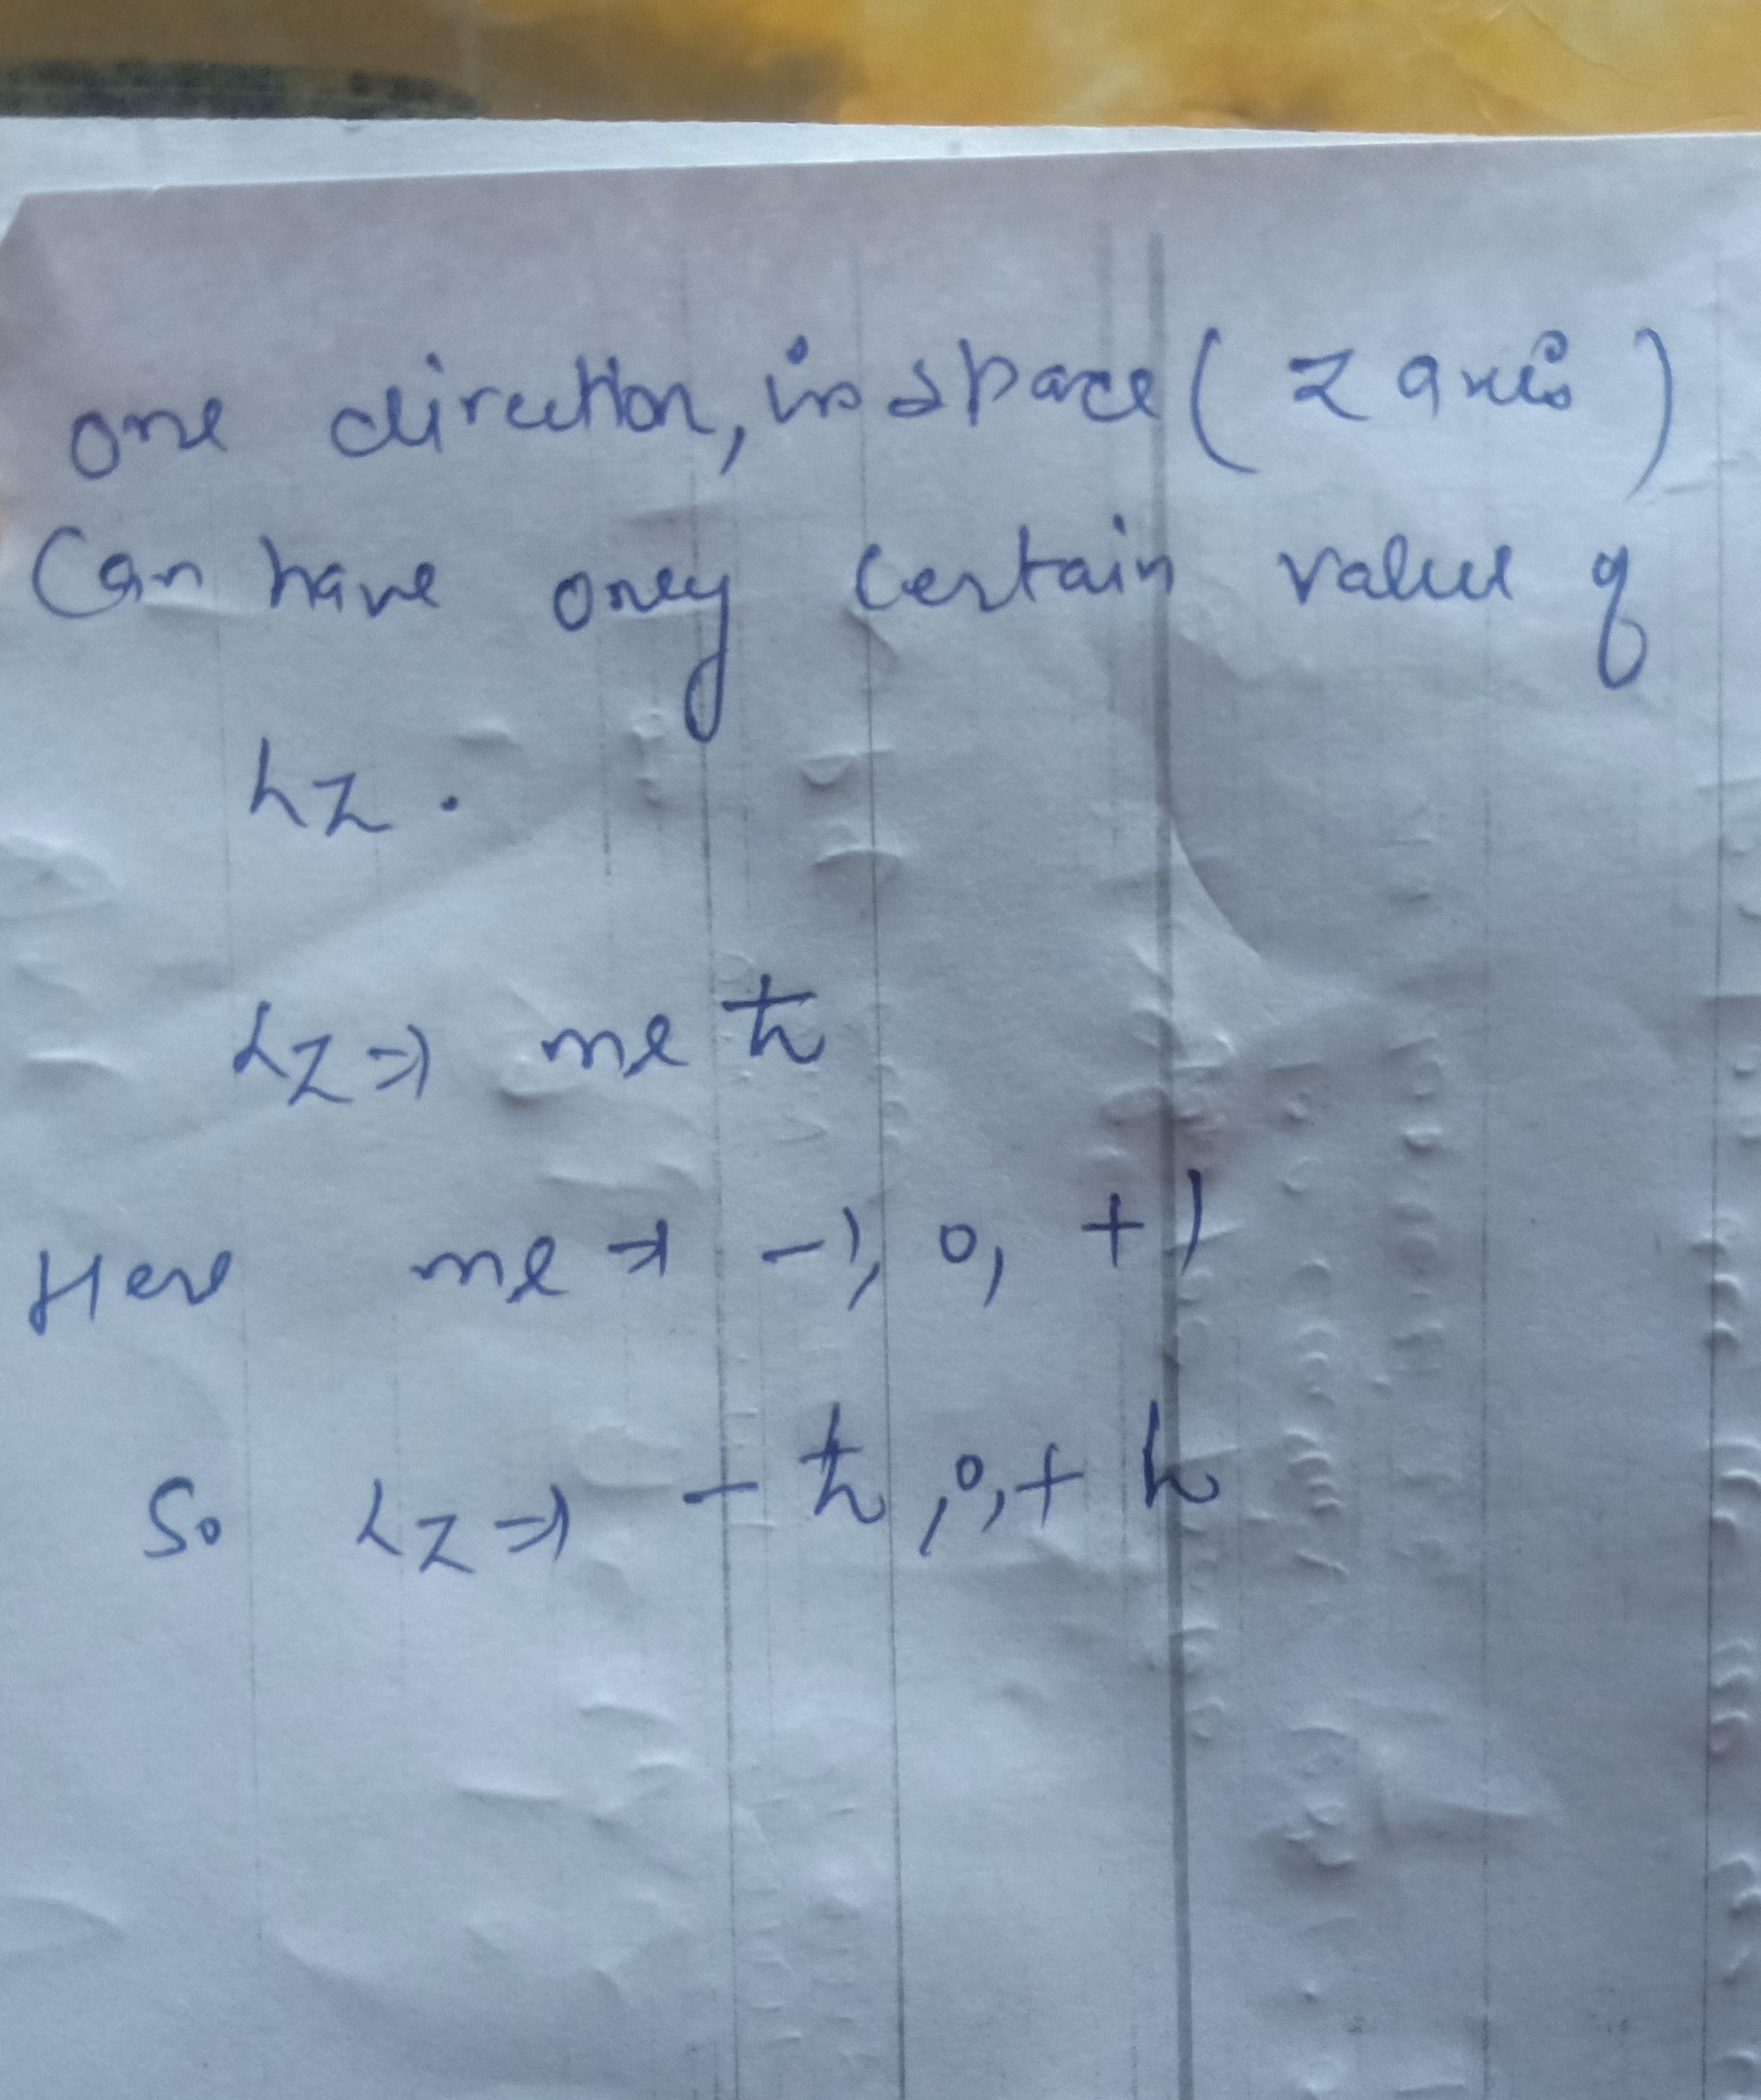 one direction, in space ( z axis )
Can have only certain value of
Lz .
Lz ⇒ ml ħ
Here ml ⇒ -1, 0, +1
So Lz ⇒ - ħ , 0, + h